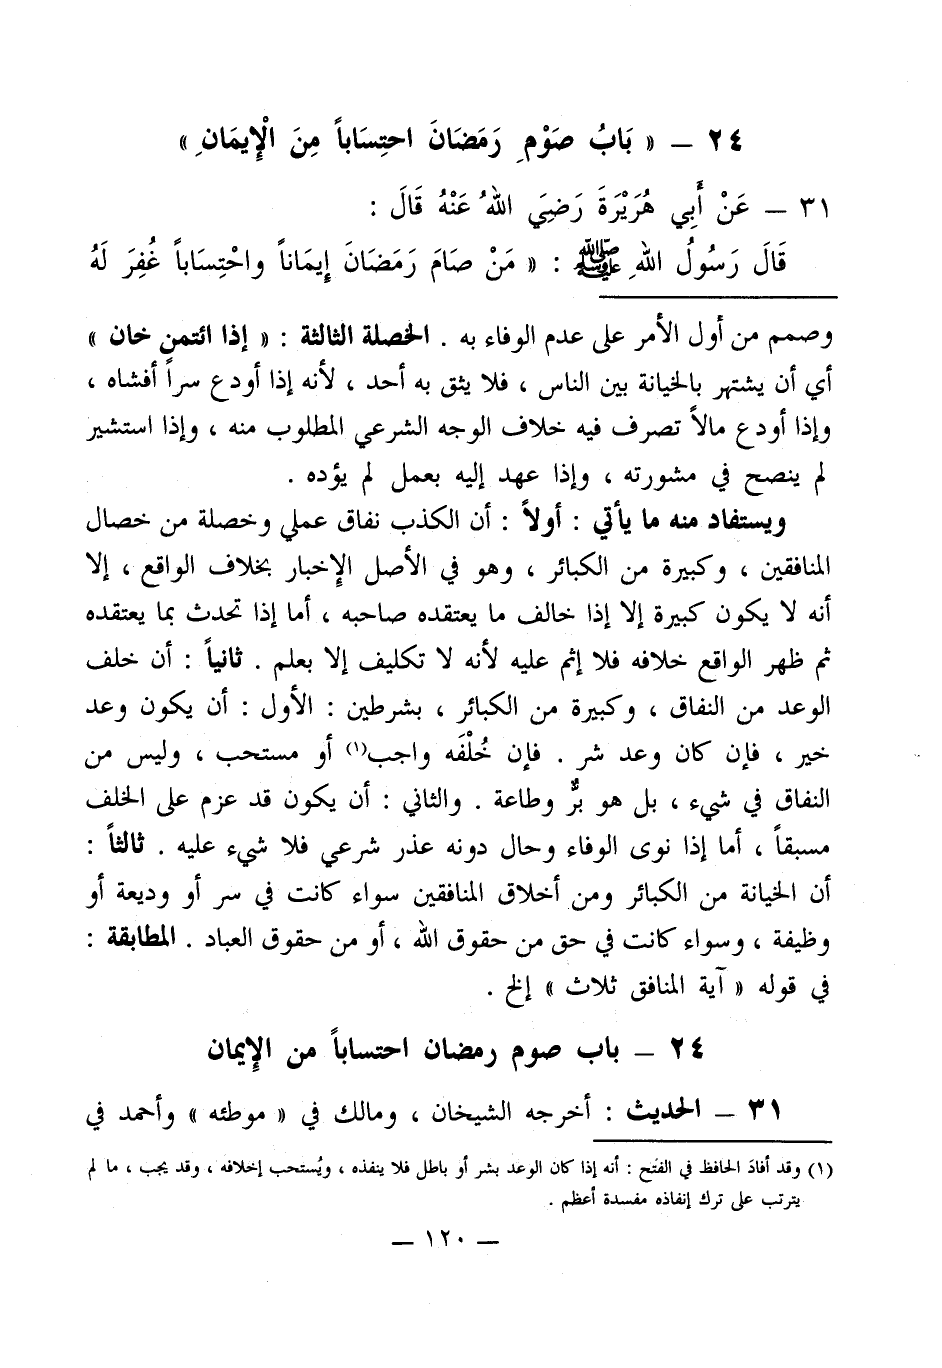 ٢٤ ــ « بَابُ صَوْمِ رَمَضَانَ احتِسَاباً مِنَ الْإِيمَانِ »
٣١ ــ عَنْ أَبِي هُرَيْرَةَ رَضِيَ اللهُ عَنْهُ قَالَ :
قَالَ رَسُولُ اللهِ ﷺ : « مَنْ صَامَ رَمَضَانَ إِيمَاناً واحْتِسَاباً غُفِرَ لَهُ
وصمم من أول الأمر على عدم الوفاء به . الخصلة الثالثة : « إذا ائتمن خان »
أي أن يشتهر بالخيانة بين الناس ، فلا يثق به أحد ، لأنه إذا أودع سراً أفشاه ،
وإذا أودع مالاً تصرف فيه خلاف الوجه الشرعي المطلوب منه ، وإذا استشير
لم ينصح في مشورته ، وإذا عهد إليه بعمل لم يؤده .
ويستفاد منه ما يأتي : أولاً : أن الكذب نفاق عملي وخصلة من خصال
المنافقين ، وكبيرة من الكبائر ، وهو في الأصل الإخبار بخلاف الواقع ، إلا
أنه لا يكون كبيرة إلا إذا خالف ما يعتقده صاحبه ، أما إذا تحدث بما يعتقده
ثم ظهر الواقع خلافه فلا إثم عليه لأنه لا تكليف إلا بعلم . ثانياً : أن خلف
الوعد من النفاق ، وكبيرة من الكبائر ، بشرطين : الأول : أن يكون وعد
خير ، فإن كان وعد شر . فإن خُلْفَه واجب(١) أو مستحب ، وليس من
النفاق في شيء ، بل هو برٌّ وطاعة . والثاني : أن يكون قد عزم على الخلف
مسبقاً ، أما إذا نوى الوفاء وحال دونه عذر شرعي فلا شيء عليه . ثالثاً :
أن الخيانة من الكبائر ومن أخلاق المنافقين سواء كانت في سر أو وديعة أو
وظيفة ، وسواء كانت في حق من حقوق الله ، أو من حقوق العباد . المطابقة :
في قوله « آية المنافق ثلاث » إلخ .
٢٤ ــ باب صوم رمضان احتساباً من الإيمان
٣١ ــ الحديث : أخرجه الشيخان ، ومالك في « موطئه » وأحمد في
(١) وقد أفادَ الحافظ في الفَتح : أنه إذا كان الوعد بشر أو باطل فلا ينفذه ، ويُستحب إخلافه ، وقد يجب ، ما لم
يترتب على ترك إنفاذه مفسدة أعظم .
ــ ١٢٠ ــ